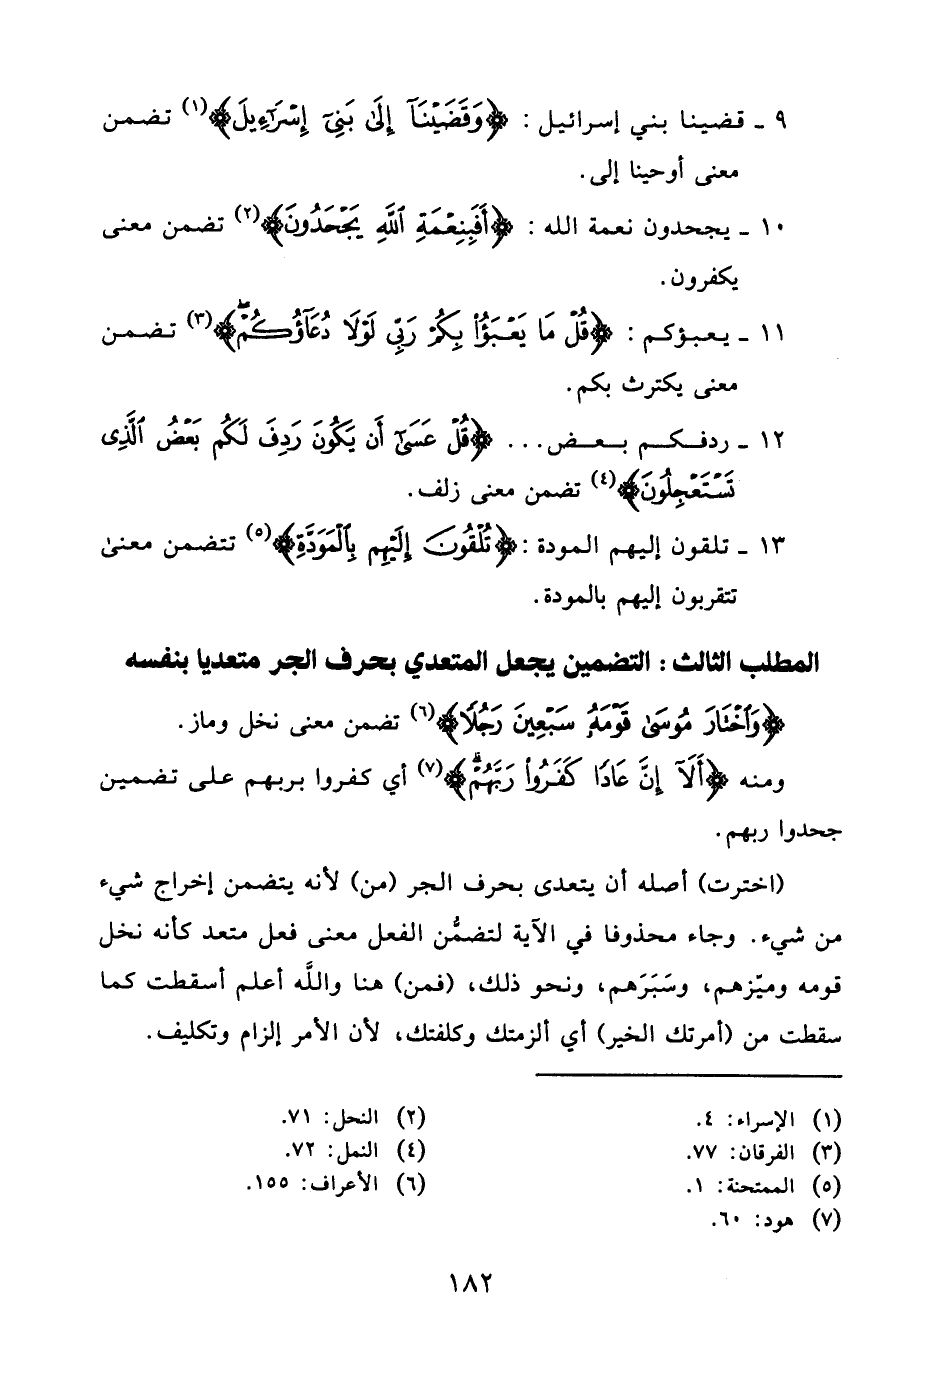 ٩ ـ قضينا بني إسرائيل : ﴿وَقَضَيْنَآ إِلَىٰ بَنِىٓ إِسْرَٰٓءِيلَ﴾(١) تضمن
معنى أوحينا إلى.
١٠ ـ يجحدون نعمة الله : ﴿أَفَبِنِعْمَةِ ٱللَّهِ يَجْحَدُونَ﴾(٢) تضمن معنى
يكفرون.
١١ ـ يعبؤكم : ﴿قُلْ مَا يَعْبَؤُا۟ بِكُمْ رَبِّى لَوْلَا دُعَآؤُكُمْ ۖ﴾(٣) تضمن
معنى يكترث بكم.
١٢ ـ ردفكم بعض... ﴿قُلْ عَسَىٰٓ أَن يَكُونَ رَدِفَ لَكُم بَعْضُ ٱلَّذِى
تَسْتَعْجِلُونَ﴾(٤) تضمن معنى زلف.
١٣ ـ تلقون إليهم المودة : ﴿تُلْقُونَ إِلَيْهِم بِٱلْمَوَدَّةِ﴾(٥) تتضمن معنىٰ
تتقربون إليهم بالمودة.
المطلب الثالث : التضمين يجعل المتعدي بحرف الجر متعديا بنفسه
﴿وَٱخْتَارَ مُوسَىٰ قَوْمَهُۥ سَبْعِينَ رَجُلًا﴾(٦) تضمن معنى نخل وماز.
ومنه ﴿أَلَآ إِنَّ عَادًا كَفَرُوا۟ رَبَّهُمْ ۗ﴾(٧) أي كفروا بربهم على تضمين
جحدوا ربهم.
(اخترت) أصله أن يتعدى بحرف الجر (من) لأنه يتضمن إخراج شيء
من شيء. وجاء محذوفا في الآية لتضمُّن الفعل معنى فعل متعد كأنه نخل
قومه وميّزهم، وسَبَرَهم، ونحو ذلك، (فمن) هنا واللَّه أعلم أسقطت كما
سقطت من (أمرتك الخير) أي ألزمتك وكلفتك، لأن الأمر إلزام وتكليف.
(١) الإسراء: ٤.
(٢) النحل: ٧١.
(٣) الفرقان: ٧٧.
(٤) النمل: ٧٢.
(٥) الممتحنة: ١.
(٦) الأعراف: ١٥٥.
(٧) هود: ٦٠.
١٨٢